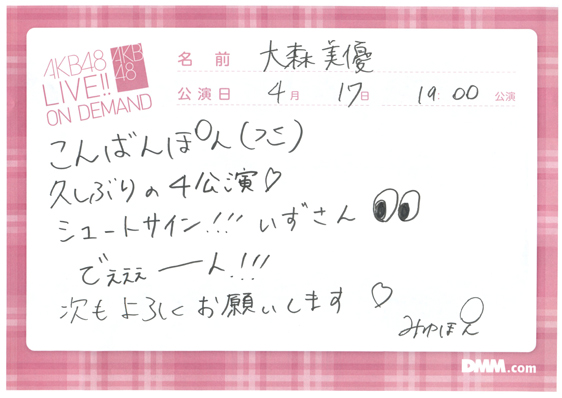 AKB48
LIVE!!
ON DEMAND
AKB
48
名前 大森美優
公演日 4月 17日 19:00 公演
こんばんぽん(つ
久しぶりの4公演♡
シュートサイン!!! いずさん
でぇぇぇーん!!!
次もよろしくお願いします♡
みゆぽん
DMM.com